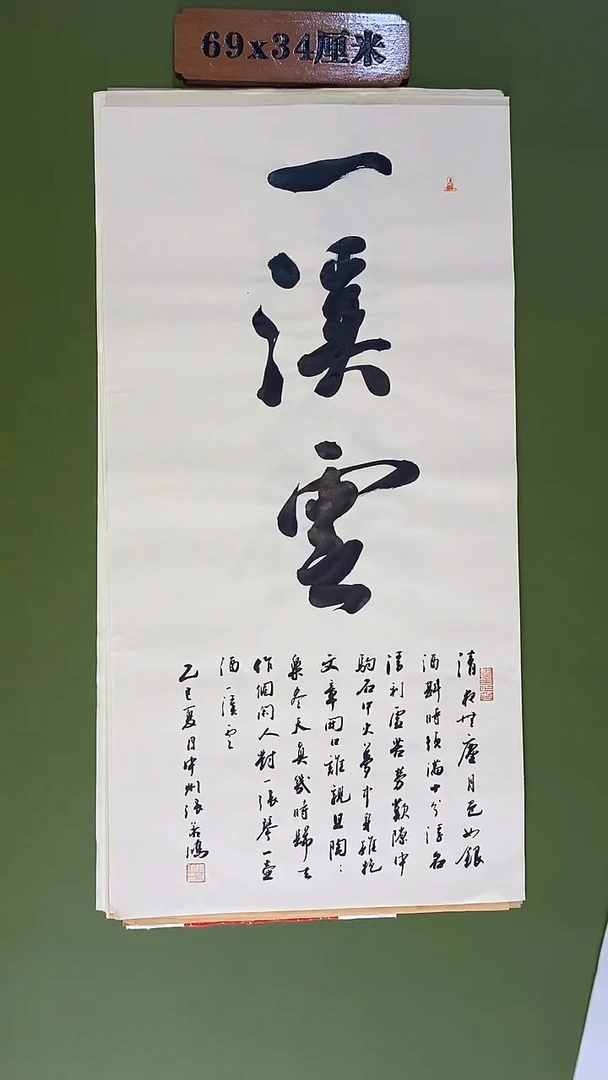 69x34厘米
一溪雲
清夜無塵月色如銀
酒斟時須滿十分浮名
浮利虛苦勞歎隙中
駒石中火夢中身雖抱
文章開口誰親且陶〻
樂盡天真幾時歸去
作個閒人對一張琴一壺
酒一溪雲
乙巳夏日中州張